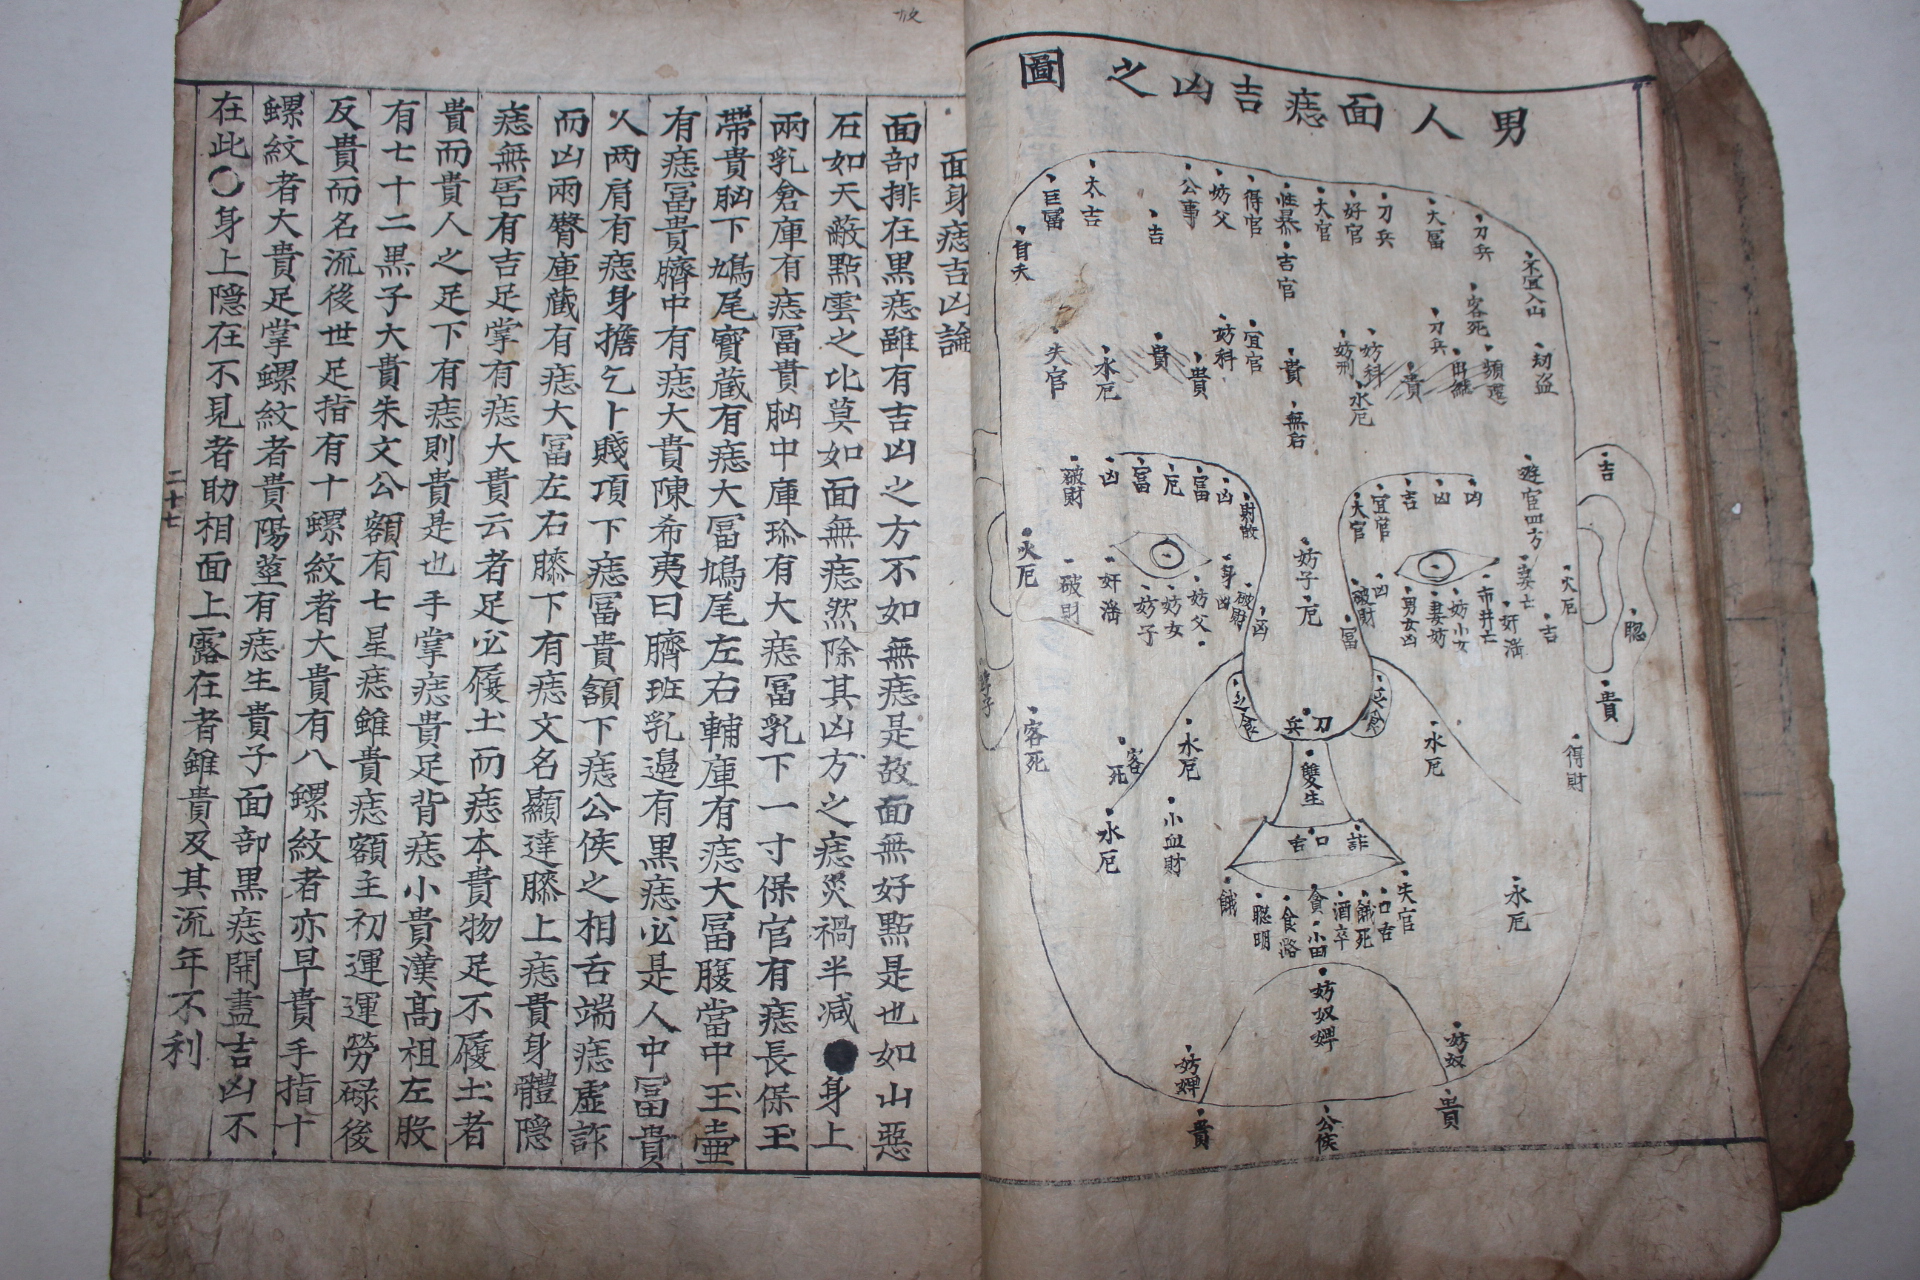 男人面痣吉凶之圖
不宜入山
刀兵
大富
刀兵
好官
大官
性暴
吉官
得官
妨父
公事
吉
大吉
巨富
客死
刀兵
劫盜
妨科
水厄
妨刑
貴
無后
宜官
妨科
貴
貴
水厄
失官
吉
遊官四方
凶
凶
吉
宜官
大官
財散
凶
富
厄
富
凶
破財
聰
吉
火厄
奸淫
市井亡
妨小女
妻妨
男女凶
凶
破財
富
妨子
厄
凶
破財
身凶
妨父
妨女
妨子
奸淫
破財
火厄
貴
得財
水厄
刀兵
雙生
水厄
客死
客死
小血財
水厄
口舌
詐
水厄
失官
口舌
餓死
酒卒
貪
小田
聰明
餓
妨奴婢
妨奴
妨婢
貴
公侯
貴
面身痣吉凶論
面部排在黑痣雖有吉凶之方不如無痣是故面無好點是也如山惡
石如天蔽點雲之比莫如面無痣然除其凶方之痣災禍半減●身上
兩乳倉庫有痣冨貴胸中庫珎有大痣冨乳下一寸保官有痣長保玉
帶貴胸下鳩尾寶藏有痣大冨鳩尾左右輔庫有痣大冨腹當中玉壷
有痣冨貴臍中有痣大貴陳希夷曰臍班乳邉有黑痣必是人中冨貴
人两肩有痣身擔乞卜賤項下痣冨貴頷下痣公侯之相舌端痣虛詐
而凶兩臀庫藏有痣大冨左右膝下有痣文名顯達膝上痣貴身體隠
痣無害有吉足掌有痣大貴云者足必履土而痣本貴物足不履土者
貴而貴人之足下有痣則貴是也手掌痣貴足背痣小貴漢高祖左股
有七十二黒子大貴朱文公額有七星痣雖貴痣額主初運運勞碌後
反貴而名流後世足指有十螺紋者大貴有八螺紋者亦早貴手指十
螺紋者大貴足掌螺紋者貴陽莖有痣生貴子面部黒痣開盡吉凶不
在此〇身上隠在不見者助相面上露在者雖貴及其流年不利
二十七